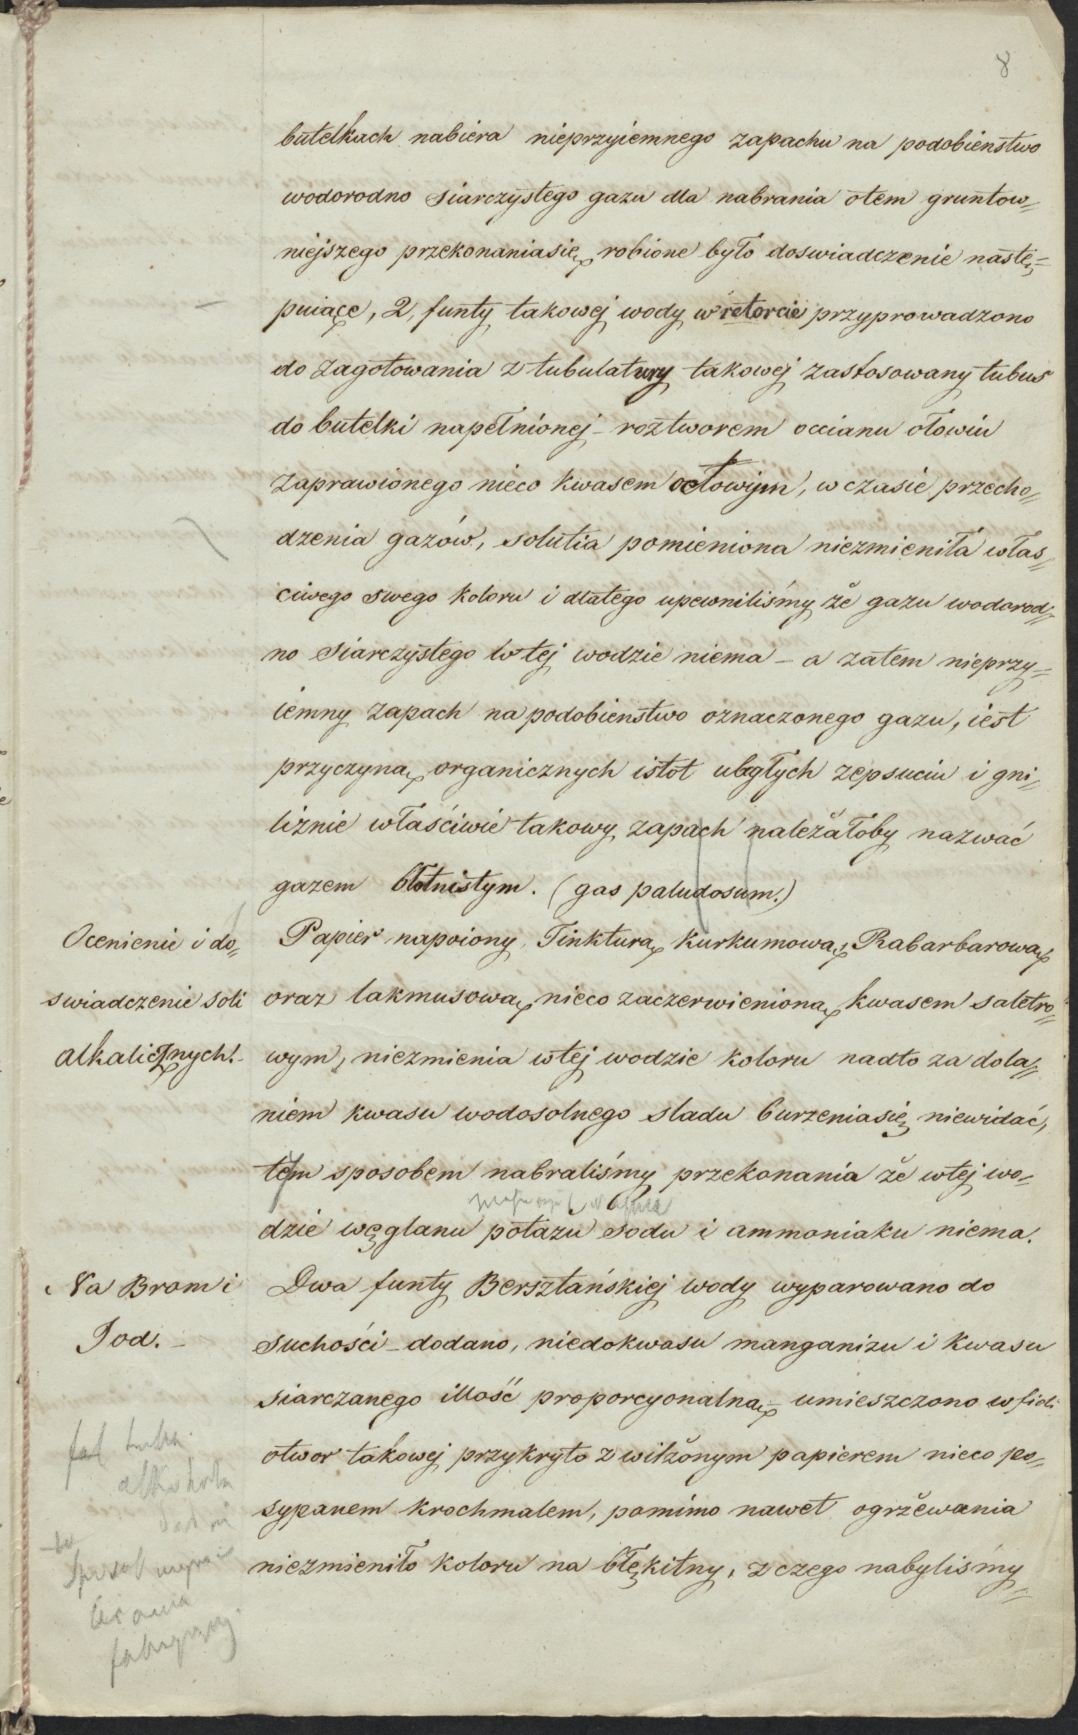 8
butelkach nabiera nieprzyiemnego zapachu na podobieństwo
wodorodno siarczystego gazu dla nabrania otem gruntow=
niejszego przekonaniasię, robione było doswiadczenie nastę=
puiące, 2, funty takowej wody w retorcie przyprowadzono
do zagotowania z tubulatury takowej zastosowany tubus
do butelki napełnionej - roztworem occianu ołowiu
zaprawionego nieco kwasem octowym, w czasie przecho=
dzenia gazów, solutia pomieniona niezmieniła włas=
ciwego swego koloru i dlatego upewniliśmy że gazu wodorod=
no siarczystego w tej wodzie niema - a zatem nieprzy=
iemny zapach na podobieństwo oznaczonego gazu, iest
przyczyną organicznych istot uległych zepsuciu i gni=
liznie właściwie takowy zapach należałoby nazwać
gazem błotnistym. (gas paludosum.)
Ocenienie i do=
swiadczenie soli
alkalicznych.-
Papier napoiony Tinkturą kurkumową, Rabarbarową
oraz lakmusową, nieco zaczerwienioną kwasem saletro=
wym, niezmienia wtej wodzie koloru nadto za dola=
niem kwasu wodosolnego sladu burzeniasię niewidać,
tym sposobem nabraliśmy przekonania że wtej wo=
dzie węglanu potazu sodu i ammoniaku niema.
Na Brom i
Jod. -
Dwa funty Bersztańskiej wody wyparowano do
suchości - dodano, niedokwasu manganizu i kwasu
siarczanego illość proporcyonalną - umieszczono w fioli
otwor takowej przykryto zwilżonym papierem nieco po=
sypanem krochmalem, pomimo nawet ogrzewania
niezmieniło koloru na błękitny, z czego nabyliśmy=